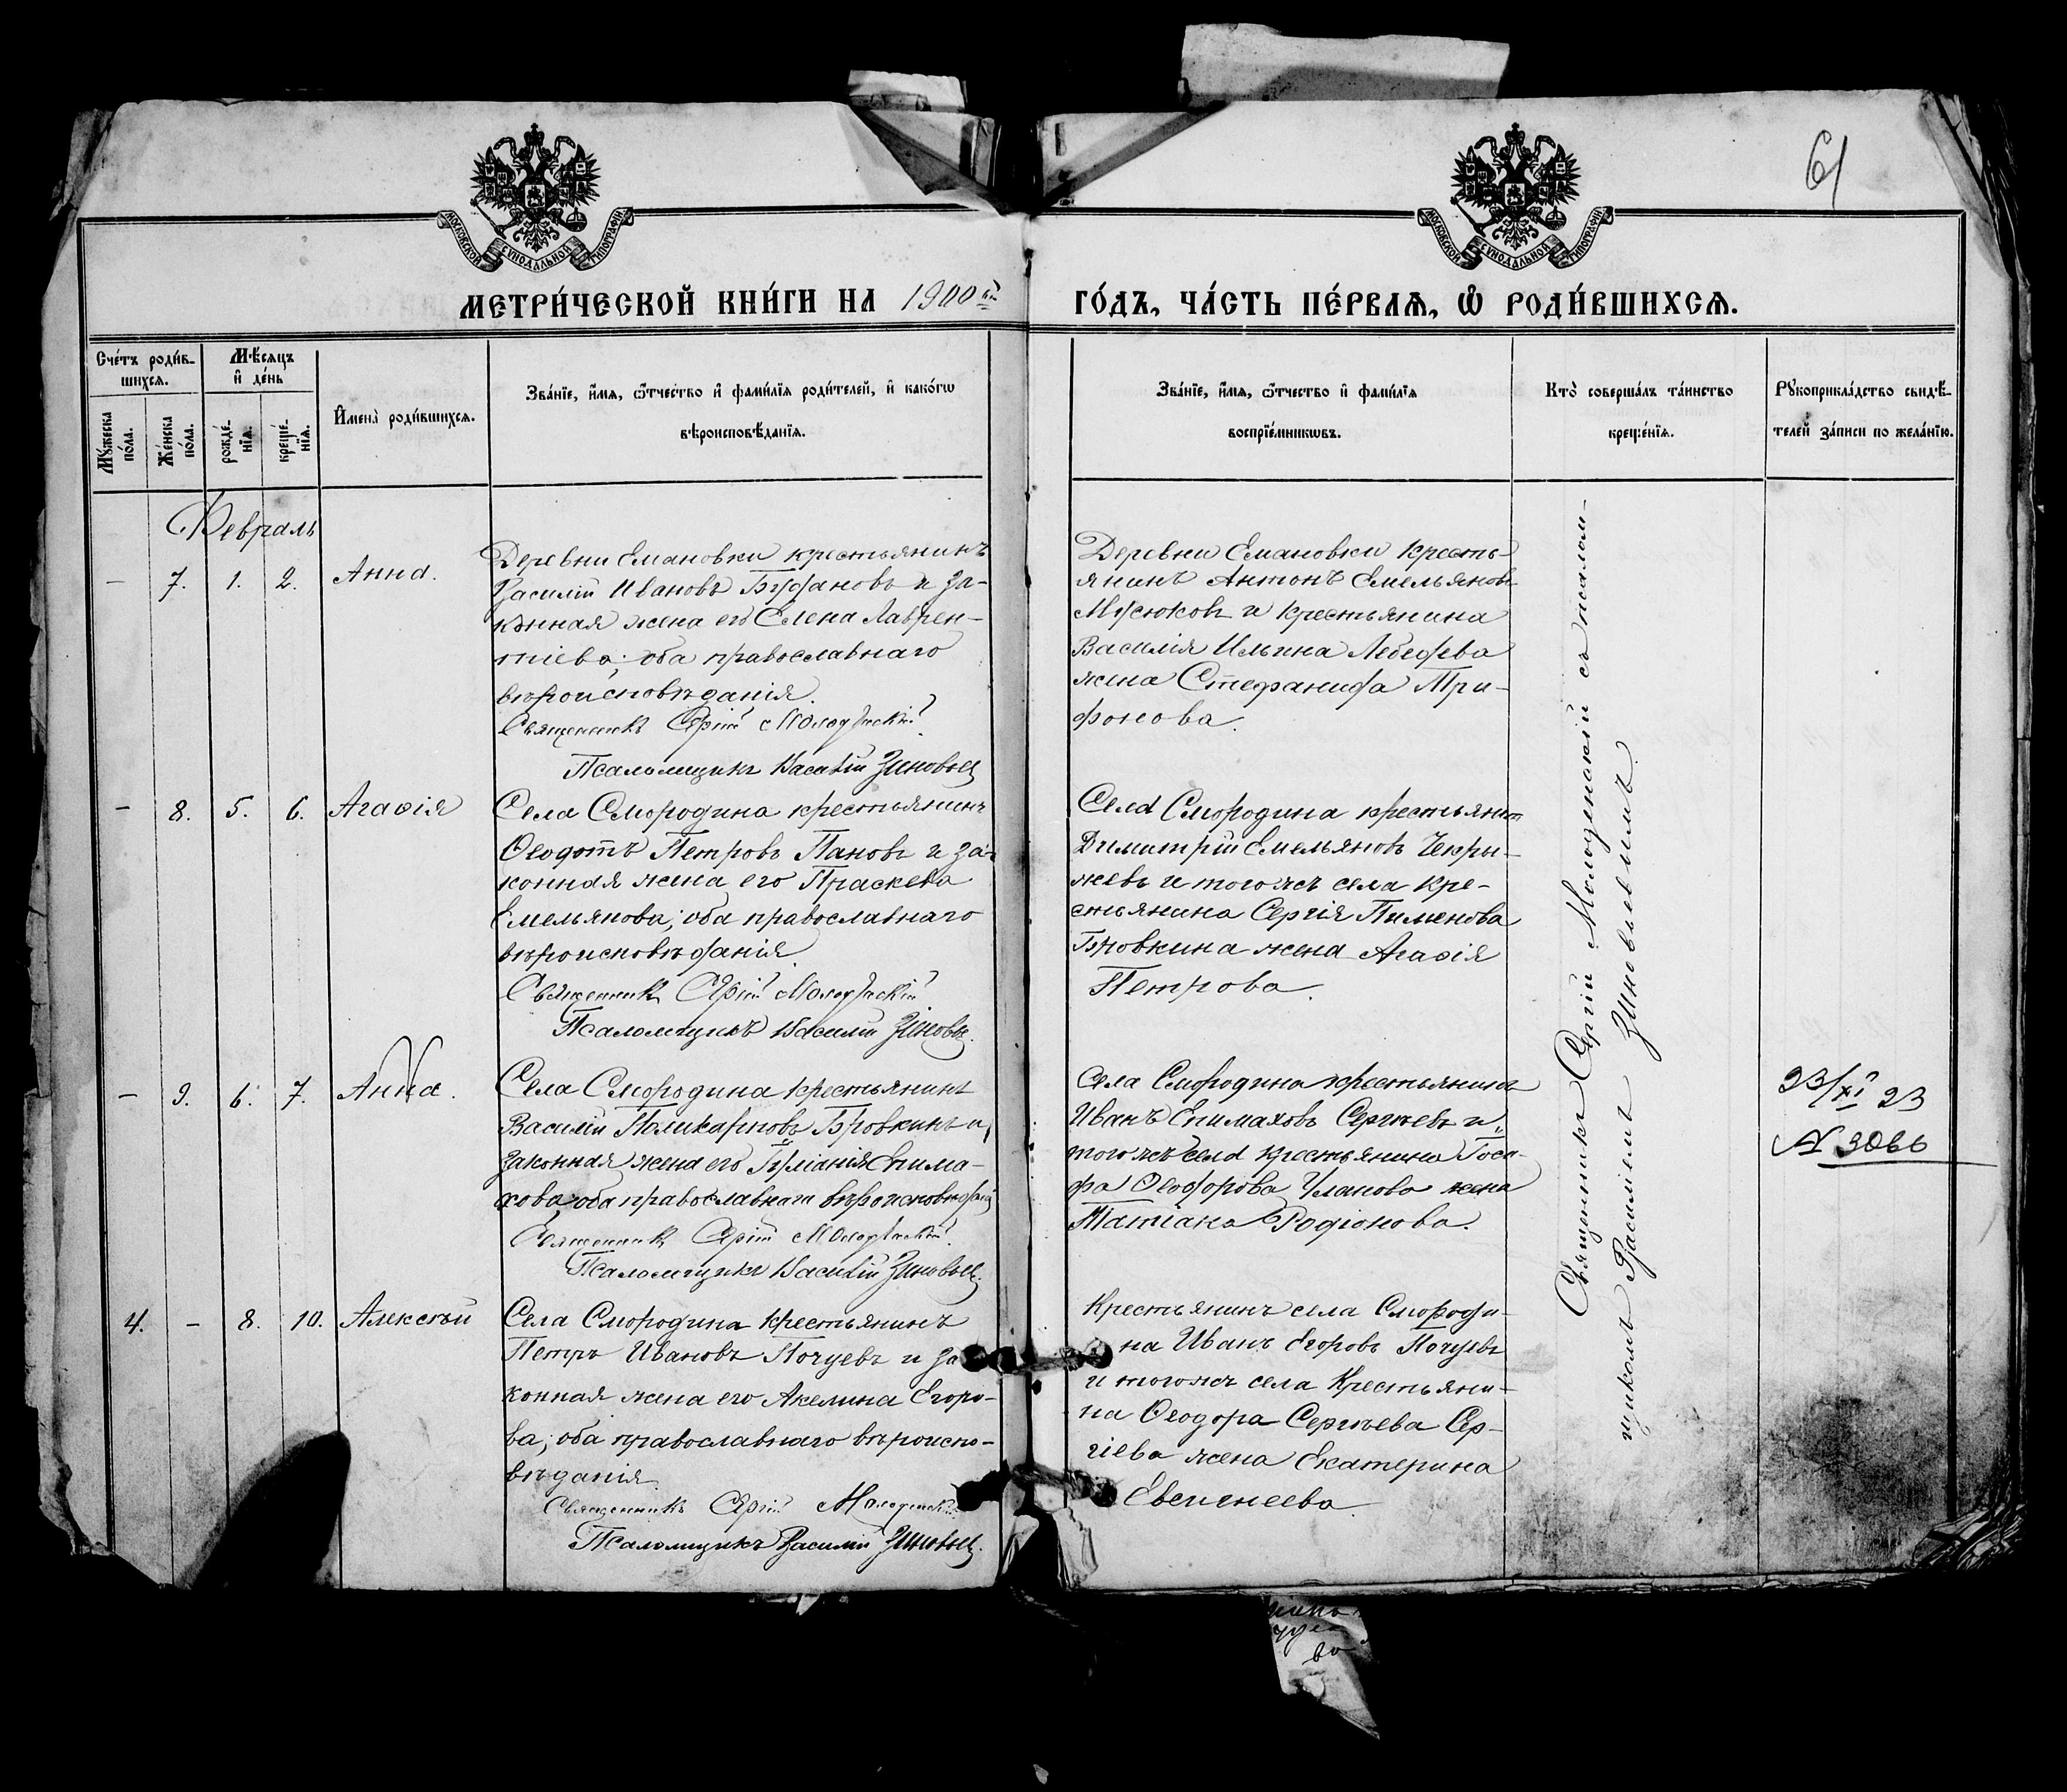 61
МОСКОВСКОЙ СѴНОДАЛЬНОЙ ТИПОГРАФІИ
МОСКОВСКОЙ СѴНОДАЛЬНОЙ ТИПОГРАФІИ
МЕТРИ́ЧЕСКОЙ КНИ́ГИ НА 1900 й
ГО́ДЪ, ЧА́СТЬ ПЕ́РВАѦ, Ѽ РОДИ́ВШИХСѦ.
Сче́тъ роди́в-
шихсѧ.
Мꙋ́жеска по́ла.
Же́нска по́ла.
Мѣ́сѧцъ
и҆ де́нь
рожде́-нїѧ.
креще́-нїѧ.
И҆мена̀ роди́вшихсѧ.
Зва́нїе, и҆́мѧ, ѻ҆́тчество и҆ фами́лїѧ роди́телей, и҆ како́гѡ
вѣроисповѣ́данїѧ.
Зва́нїе, и҆́мѧ, ѻ҆́тчество и҆ фами́лїѧ
воспрїе́мникѡвъ.
Кто̀ соверша́лъ та́инство
креще́нїѧ.
Рꙋкоприкла́дство свидѣ́-
телей за́писи по жела́нїю.
Февраль
- 7. 1. 2. Анна.
Деревни Емановки крестьянинъ
Василій Ивановъ и за-
кѣнная жена его Елена Лаврен-
тіева; оба православнаго
вѣроисповѣданія.
Священникъ Сергій Молодѣнскій
Псаломщикъ Василій Зиновьев
Деревни Емановки кресть-
янинъ Антонъ Емельяновъ
Мусюковъ и крестьянина
Василія Ильина Лебедева
жена Стефанида Три-
фонова.
- 8. 5. 6. Агаѳія
Села Смородина крестьянинъ
Ѳеодотъ Петровъ Пановъ и за-
конная жена его Праскева
Емельянова; оба православнаго
вѣроисповѣданія.
Священникъ Сергій Молодѣнскій
Псаломщикъ Василій Зиновьев.
Села Смородина крестьянинъ
Димитрій Емельяновъ Чекры-
жевъ и того жъ села кре-
стьянина Сергія Пименова
Бровкина жена Агаѳія
Петрова.
- 9. 6. 7. Анна.
Села Смородина крестьянинъ
Василій Поликарповъ Бровкинъ и
законная жена его Іуліанія Епима-
хова; оба православнаго вѣроисповѣданія
Священникъ Сергій Молодѣнскій.
Псаломщикъ Василій Зиновьев.
Села Смородина крестьянинъ
Иванъ Епимаховъ Сергѣевъ и
того жъ села крестьянина Іоса-
фа Ѳеодорова Уланова жена
Татіана Родіонова.
23/XI 23
№ 3066
4. - 8. 10. Алексѣй
Села Смородина крестьянинъ
Петръ Ивановъ Почуевъ и за
конная жена его Акелина Егоро-
ва; оба православнаго вѣроиспо-
вѣданія.
Священникъ Сергій Молодѣнскій
Псаломщикъ Василій Зиновьев.
Крестьянинъ села Смороди-
на Иванъ Егоровъ Почуевъ
и того жъ села Крестьяни-
на Ѳеодора Сергѣева Сер-
гіева жена Екатерина
Евсигнеева.
Священникъ Сергій Молодѣнскій съ псалом-
щикомъ Василіемъ Зиновьевымъ.